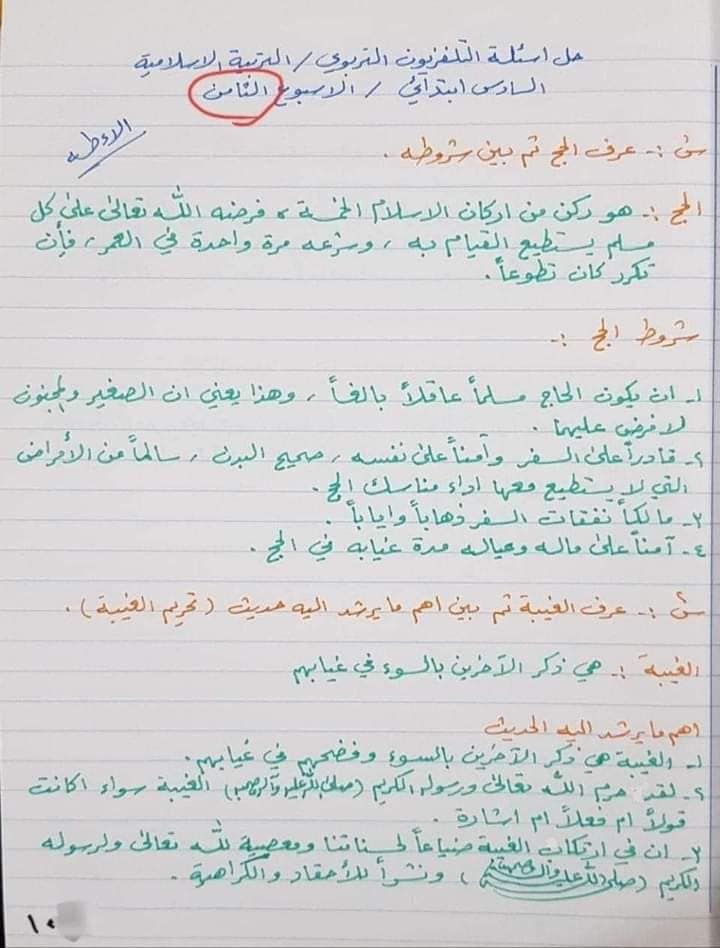 حل اسئلة التلفزيون التربوي / التربية الاسلامية
السادس ابتدائي / الاسبوع الثامن
س١ :- عرف الحج ثم بين شروطه .
الحج :- هو ركن من اركان الاسلام الخمسة ، فرضه الله تعالى على كل
مسلم يستطيع القيام به ، وشرعه مرة واحدة في العمر ، فأن
تكرر كان تطوعاً .
شروط الحج :-
١- ان يكون الحاج مسلماً عاقلاً بالغاً ، وهذا يعني ان الصغير والمجنون
لا فرض عليهما .
٢- قادراً على السفر وآمناً على نفسه ، صحيح البدن ، سالماً من الأمراض
التي لا يستطيع معها اداء مناسك الحج .
٣- مالكاً نفقات السفر ذهاباً واياباً .
٤- آمناً على ماله وعياله مدة غيابه في الحج .
س٢ :- عرف الغيبة ثم بين اهم ما يرشد اليه حديث (تحريم الغيبة) .
الغيبة :- هي ذكر الآخرين بالسوء في غيابهم
اهم ما يرشد اليه الحديث
١- الغيبة هي ذكر الآخرين بالسوء وفضحهم في غيابهم .
٢- لقد حرم الله تعالى ورسوله الكريم (صلى الله عليه وآله وصحبه) الغيبة سواء اكانت
قولاً ام فعلاً ام اشارة .
٣- ان في ارتكاب الغيبة ضياعاً لحسناتنا ومعصية لله تعالى ولرسوله
الكريم ( صلى الله عليه وآله وصحبه ) ونشراً للأحقاد والكراهية .
١٠